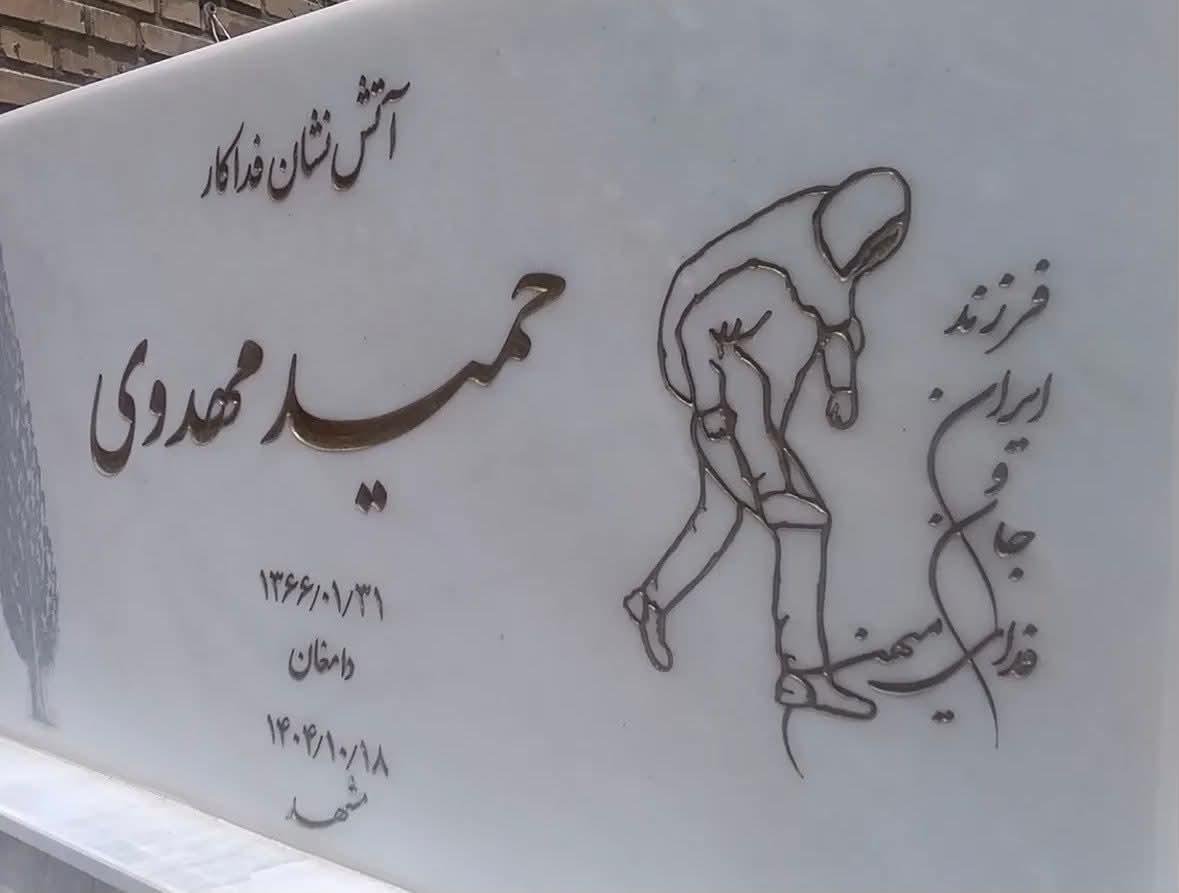 آتش نشان فداکار
حمید مهدوی
۱۳۶۶/۰۱/۳۱
دامغان
۱۴۰۴/۱۰/۱۸
مشهد
فرزند
ایران
و
جان
فدای میهن